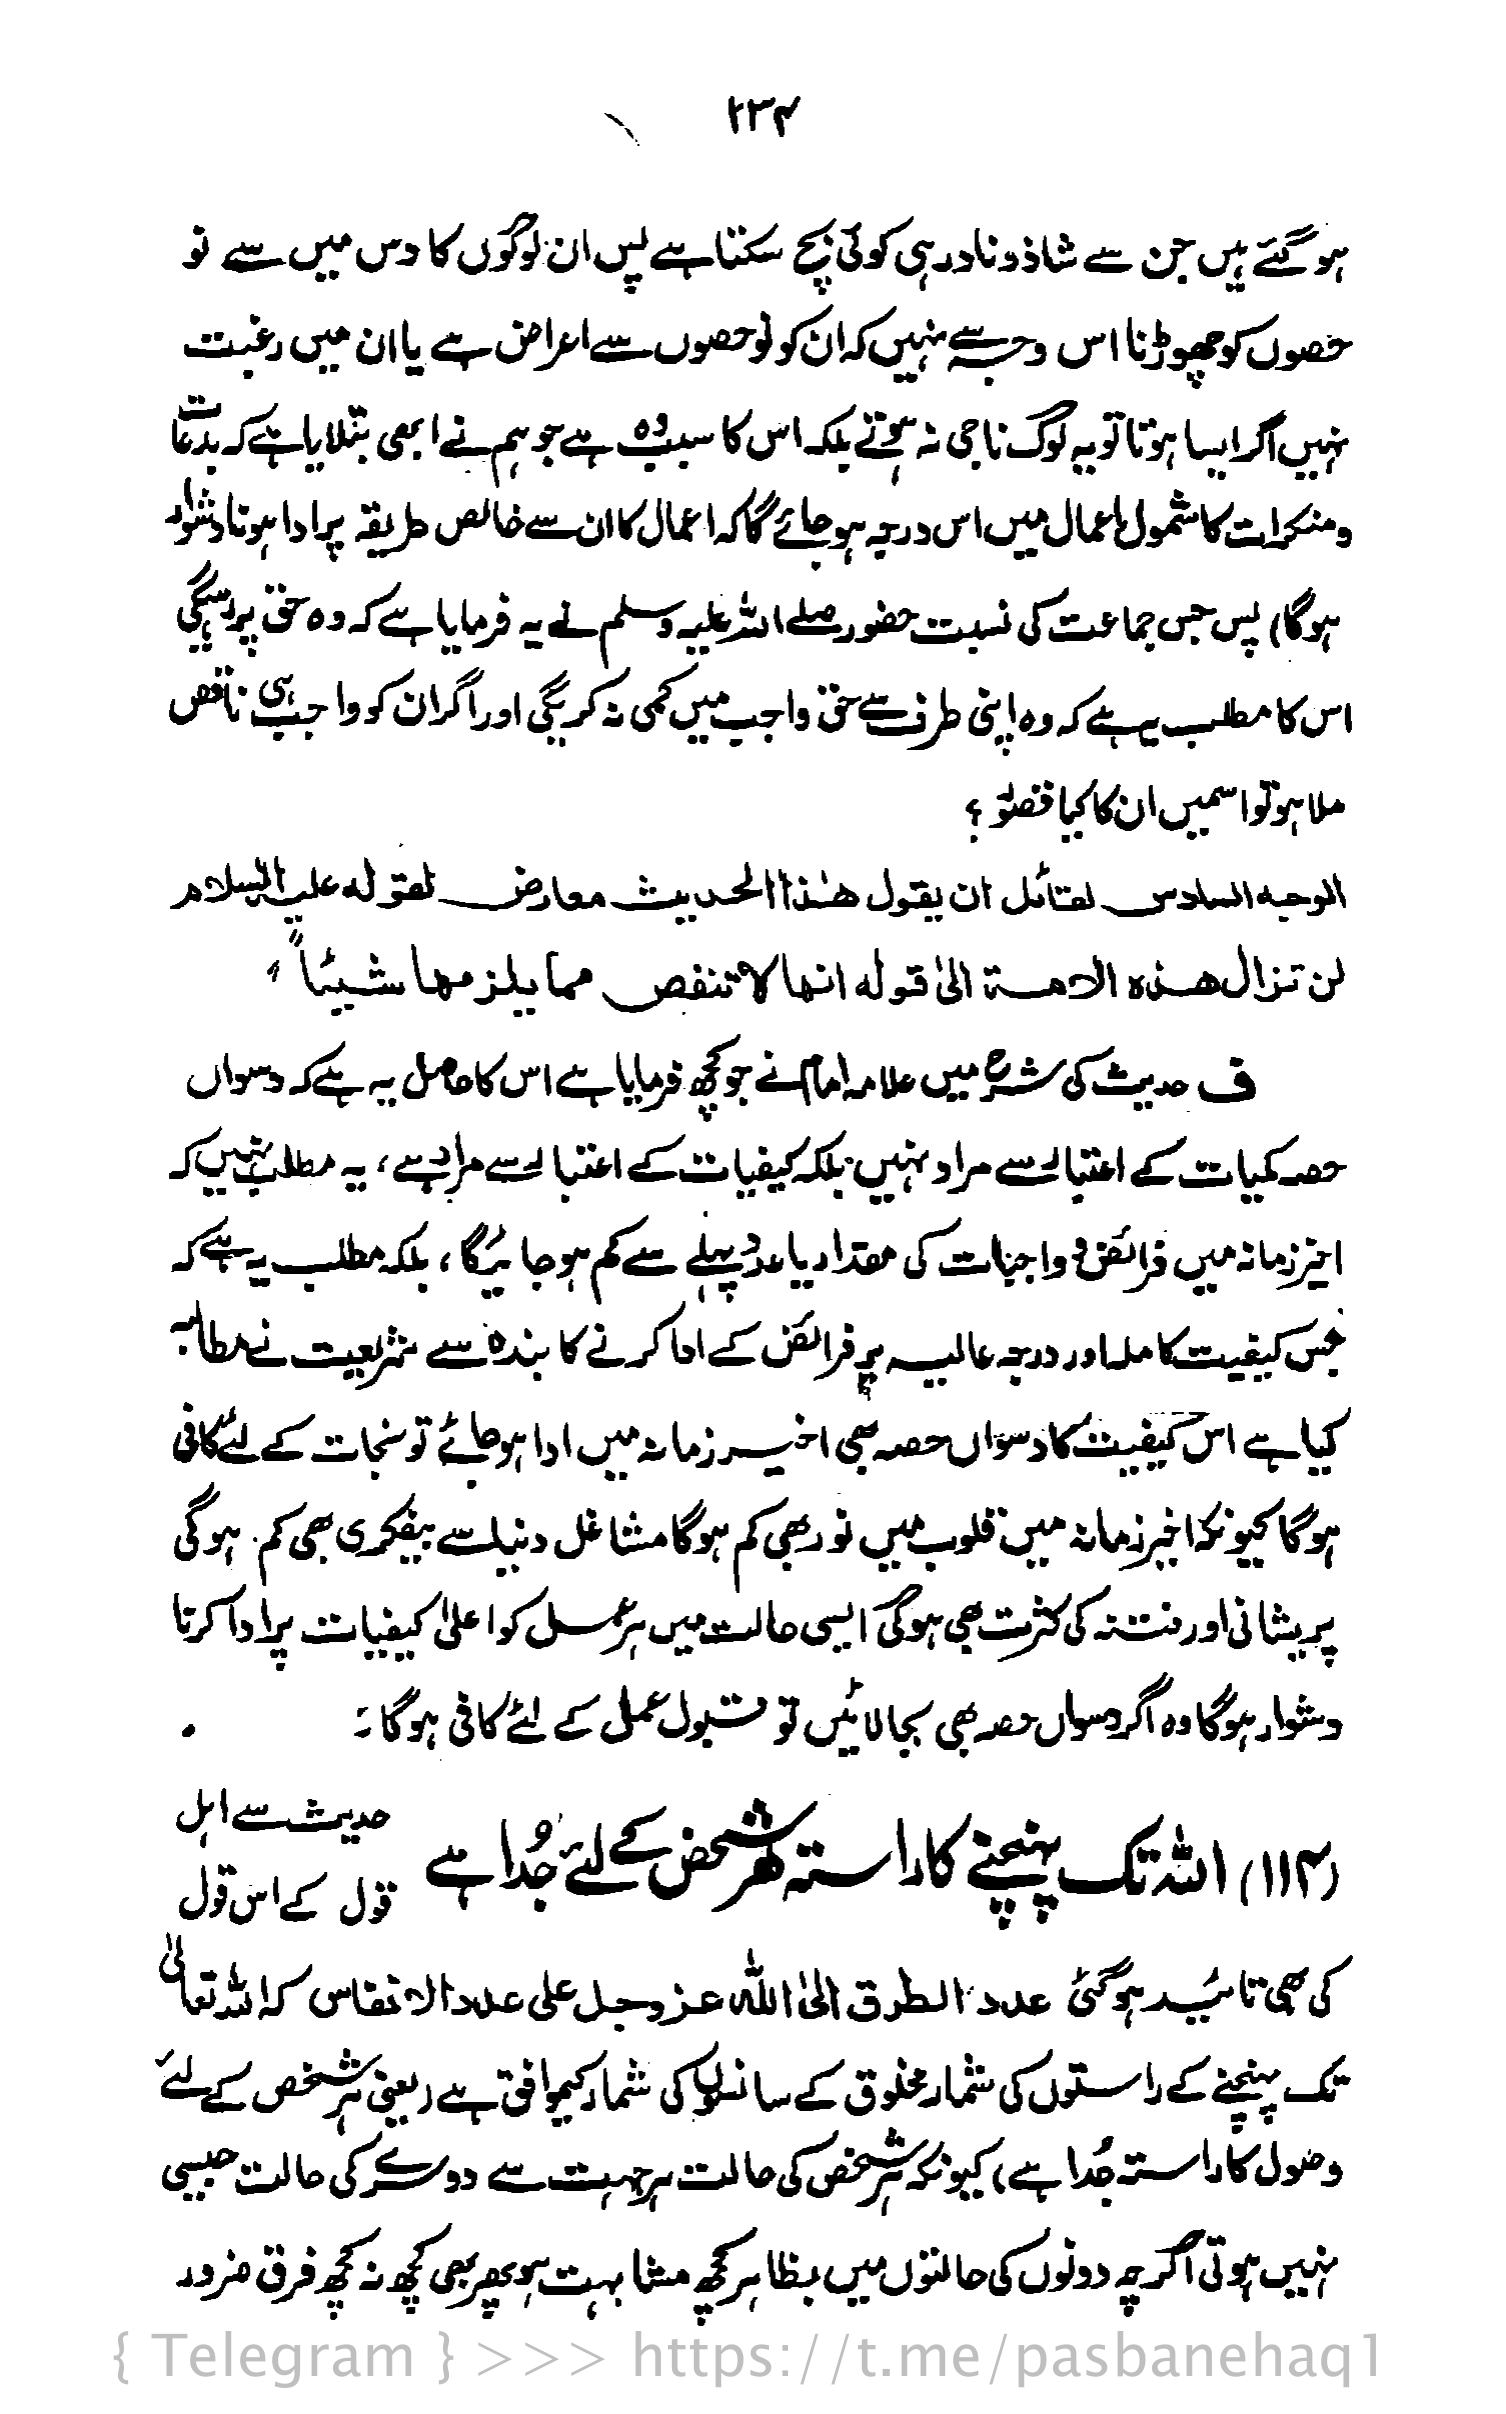 ۲۳۴
ہوگئے ہیں جن سے شاذ و نادر ہی کوئی بچ سکتا ہے پس ان لوگوں کا دس میں سے نو
حصوں کو چھوڑنا اس وجہ سے نہیں کہ ان کو نو حصوں سے اعراض ہے یا ان میں رغبت
نہیں اگر ایسا ہوتا تو یہ لوگ ناجی نہ ہوتے بلکہ اس کا سبب وہ ہے جو ہم نے ابھی بتلایا ہے کہ بدعات
و منکرات کا شمول اعمال میں اس درجہ ہو جائے گا کہ اعمال کا ان سے خالص طریقہ پر ادا ہونا دشوار
ہوگا) پس جس جماعت کی نسبت حضور صلے اللہ علیہ وسلم نے یہ فرمایا ہے کہ وہ حق پر رہیگی
اس کا مطلب یہ ہے کہ وہ اپنی طرف سے حق واجب میں کمی نہ کریگی اور اگر ان کو واجب ہی ناقص
ملا ہو تو اسمیں ان کا کیا قصور ؟
الوجہ السادس لقائل ان یقول ھٰذا الحدیث معارض لقولہ علیہ السلام
لن تزال ھذہ الامۃ الیٰ قولہ انھا لا تنقص مما یلزمھا شیئاً "
ف حدیث کی شرح میں علامہ امام نے جو کچھ فرمایا ہے اس کا حاصل یہ ہے کہ دسواں
حصہ کمیات کے اعتبار سے مراد نہیں بلکہ کیفیات کے اعتبار سے مراد ہے، یہ مطلب نہیں کہ
اخیر زمانہ میں فرائض و واجبات کی مقدار یا عدد پہلے سے کم ہو جائیگا، بلکہ مطلب یہ ہے کہ
جس کیفیت کاملہ اور درجہ عالیہ پر فرائض کے ادا کرنے کا بندہ سے شریعت نے مطالبہ
کیا ہے اس کیفیت کا دسواں حصہ بھی اخیر زمانہ میں ادا ہو جائے تو نجات کے لئے کافی
ہوگا کیونکہ اخیر زمانہ میں قلوب میں نور بھی کم ہوگا مشاغل دنیا سے بیفکری بھی کم ہوگی
پریشانی اور فتنہ کی کثرت بھی ہوگی ایسی حالت میں ہر عمل کو اعلیٰ کیفیات پر ادا کرنا
دشوار ہوگا وہ اگر دسواں حصہ بھی بجا لائیں تو قبول عمل کے لئے کافی ہوگا۔
(۱۱۴) اللہ تک پہنچنے کا راستہ ہر شخص کے لئے جُدا ہے
حدیث سے اہل
قول کے اس قول
کی بھی تائید ہوگئی عدد الطرق الیٰ اللہ عز وجل علی عدد الانفاس کہ اللہ تعالیٰ
تک پہنچنے کے راستوں کی شمار مخلوق کے سانسوں کی شمار کیموافق ہے (یعنی ہر شخص کے لئے
وصول کا راستہ جُدا ہے) کیونکہ ہر شخص کی حالت ہر جہت سے دوسرے کی حالت جیسی
نہیں ہوتی اگرچہ دونوں کی حالتوں میں بظاہر کچھ مشابہت ہو پھر بھی کچھ نہ کچھ فرق ضرور
{ Telegram } >>> https://t.me/pasbanehaq1